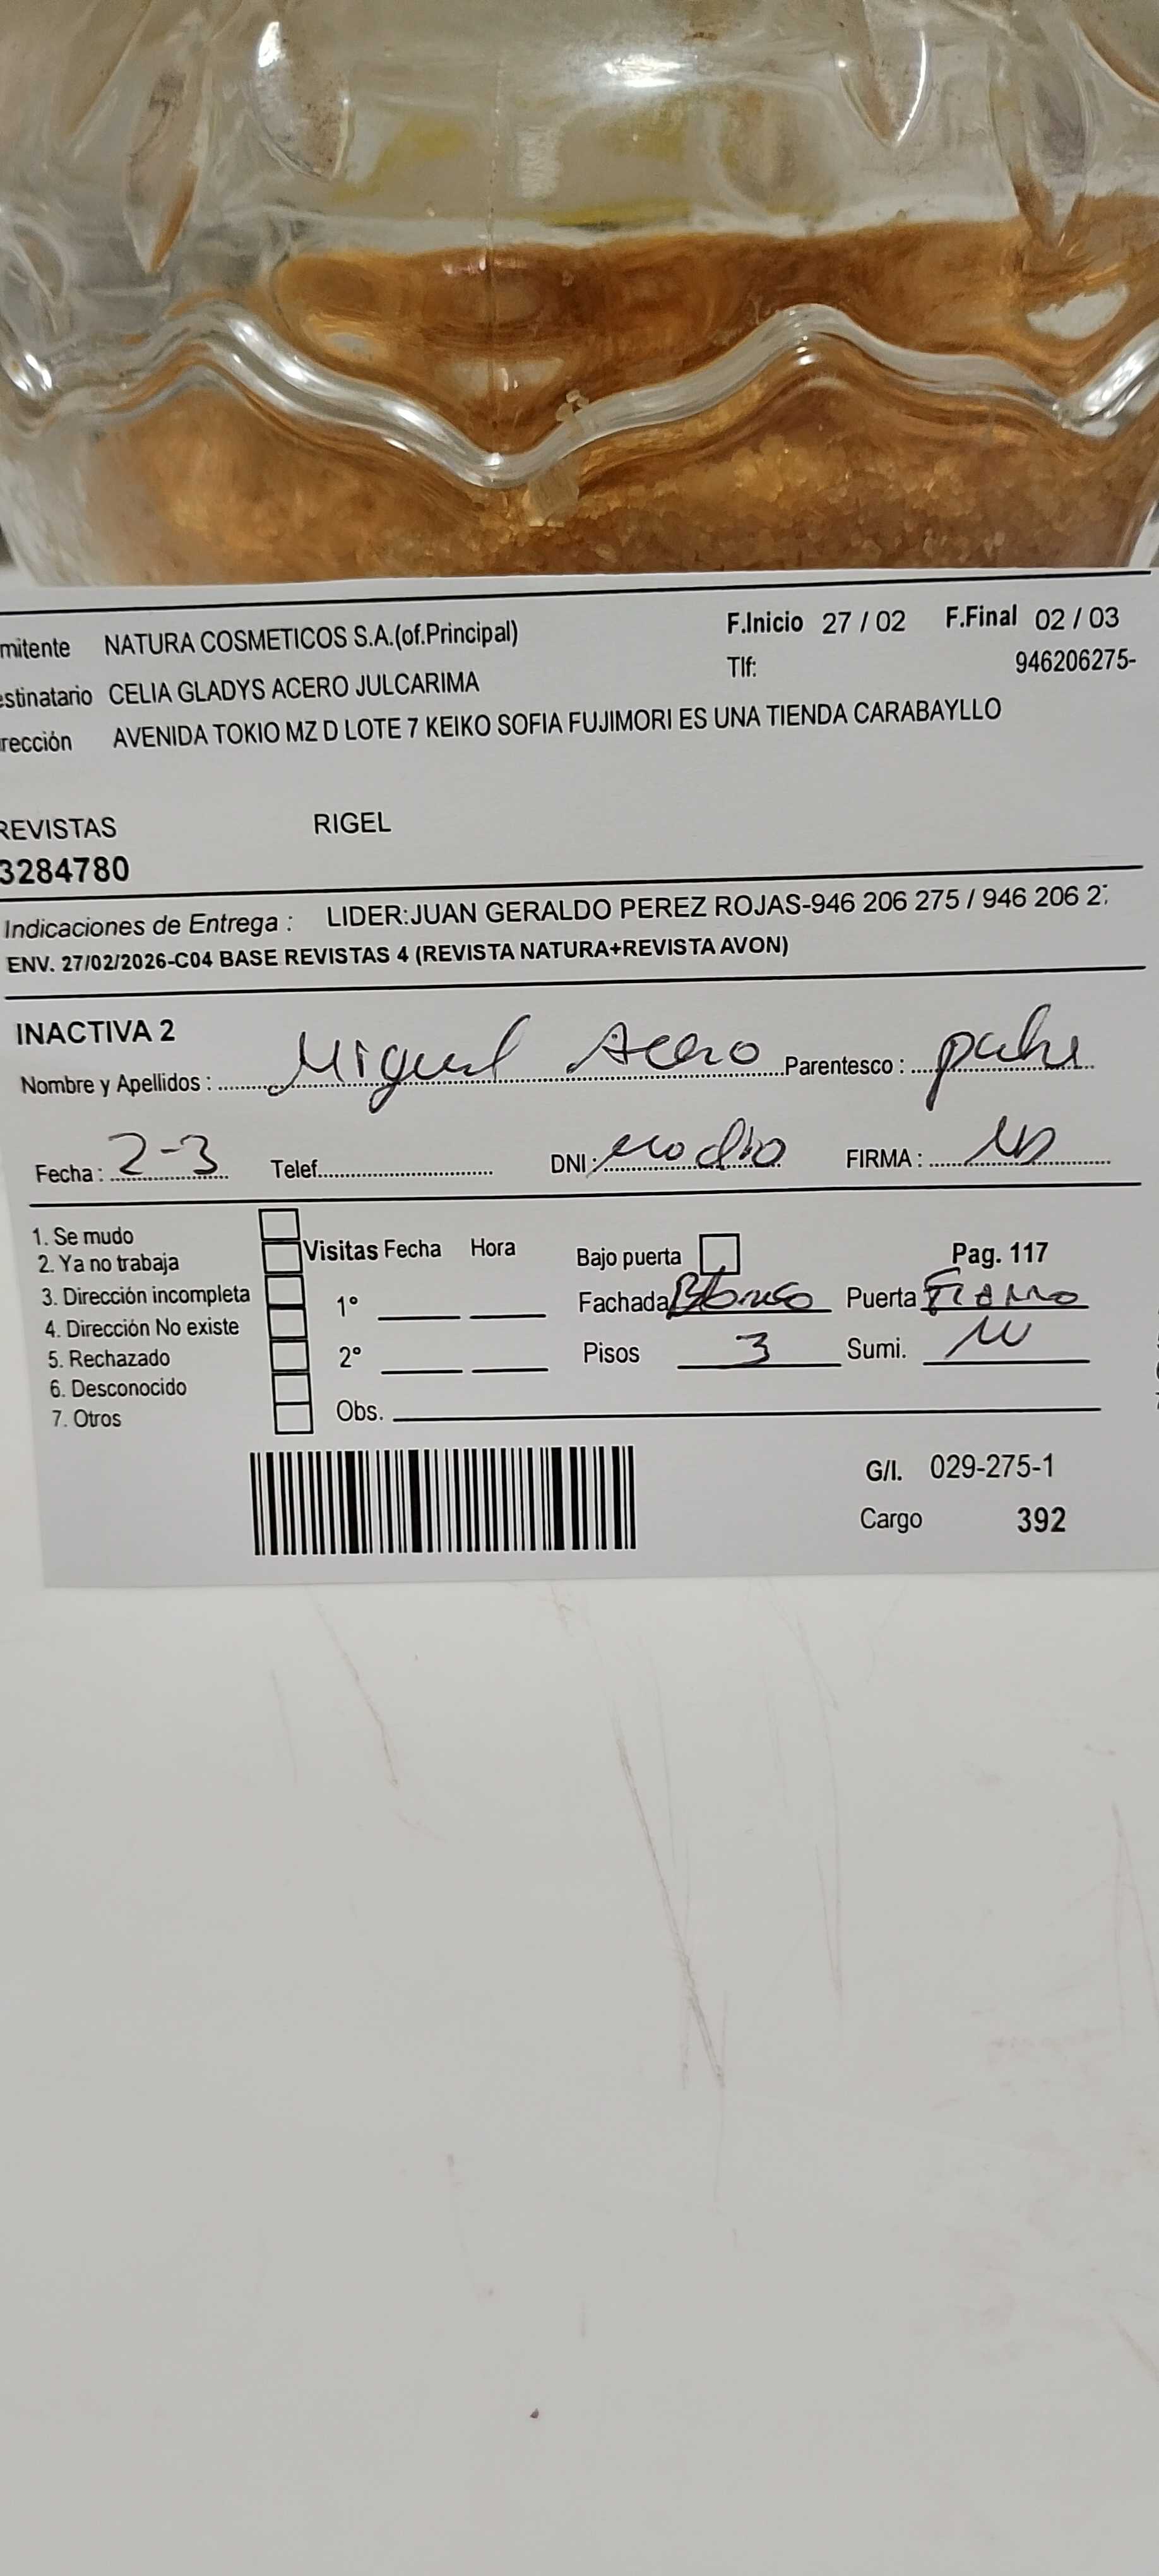 mitente NATURA COSMETICOS S.A.(of.Principal) F.Inicio 27 / 02 F.Final 02 / 03
estinatario CELIA GLADYS ACERO JULCARIMA Tlf: 946206275-
rección AVENIDA TOKIO MZ D LOTE 7 KEIKO SOFIA FUJIMORI ES UNA TIENDA CARABAYLLO
REVISTAS RIGEL
3284780
Indicaciones de Entrega : LIDER:JUAN GERALDO PEREZ ROJAS-946 206 275 / 946 206 2
ENV. 27/02/2026-C04 BASE REVISTAS 4 (REVISTA NATURA+REVISTA AVON)
INACTIVA 2
Nombre y Apellidos : Miguel Acero Parentesco : padre
Fecha : 2-3 Telef. DNI : no dio FIRMA :
1. Se mudo
2. Ya no trabaja
3. Dirección incompleta
4. Dirección No existe
5. Rechazado
6. Desconocido
7. Otros
Visitas Fecha Hora
1°
2°
Obs.
Bajo puerta Pag. 117
Fachada Blanco Puerta Fierro
Pisos 3 Sumi.
G/I. 029-275-1
Cargo 392